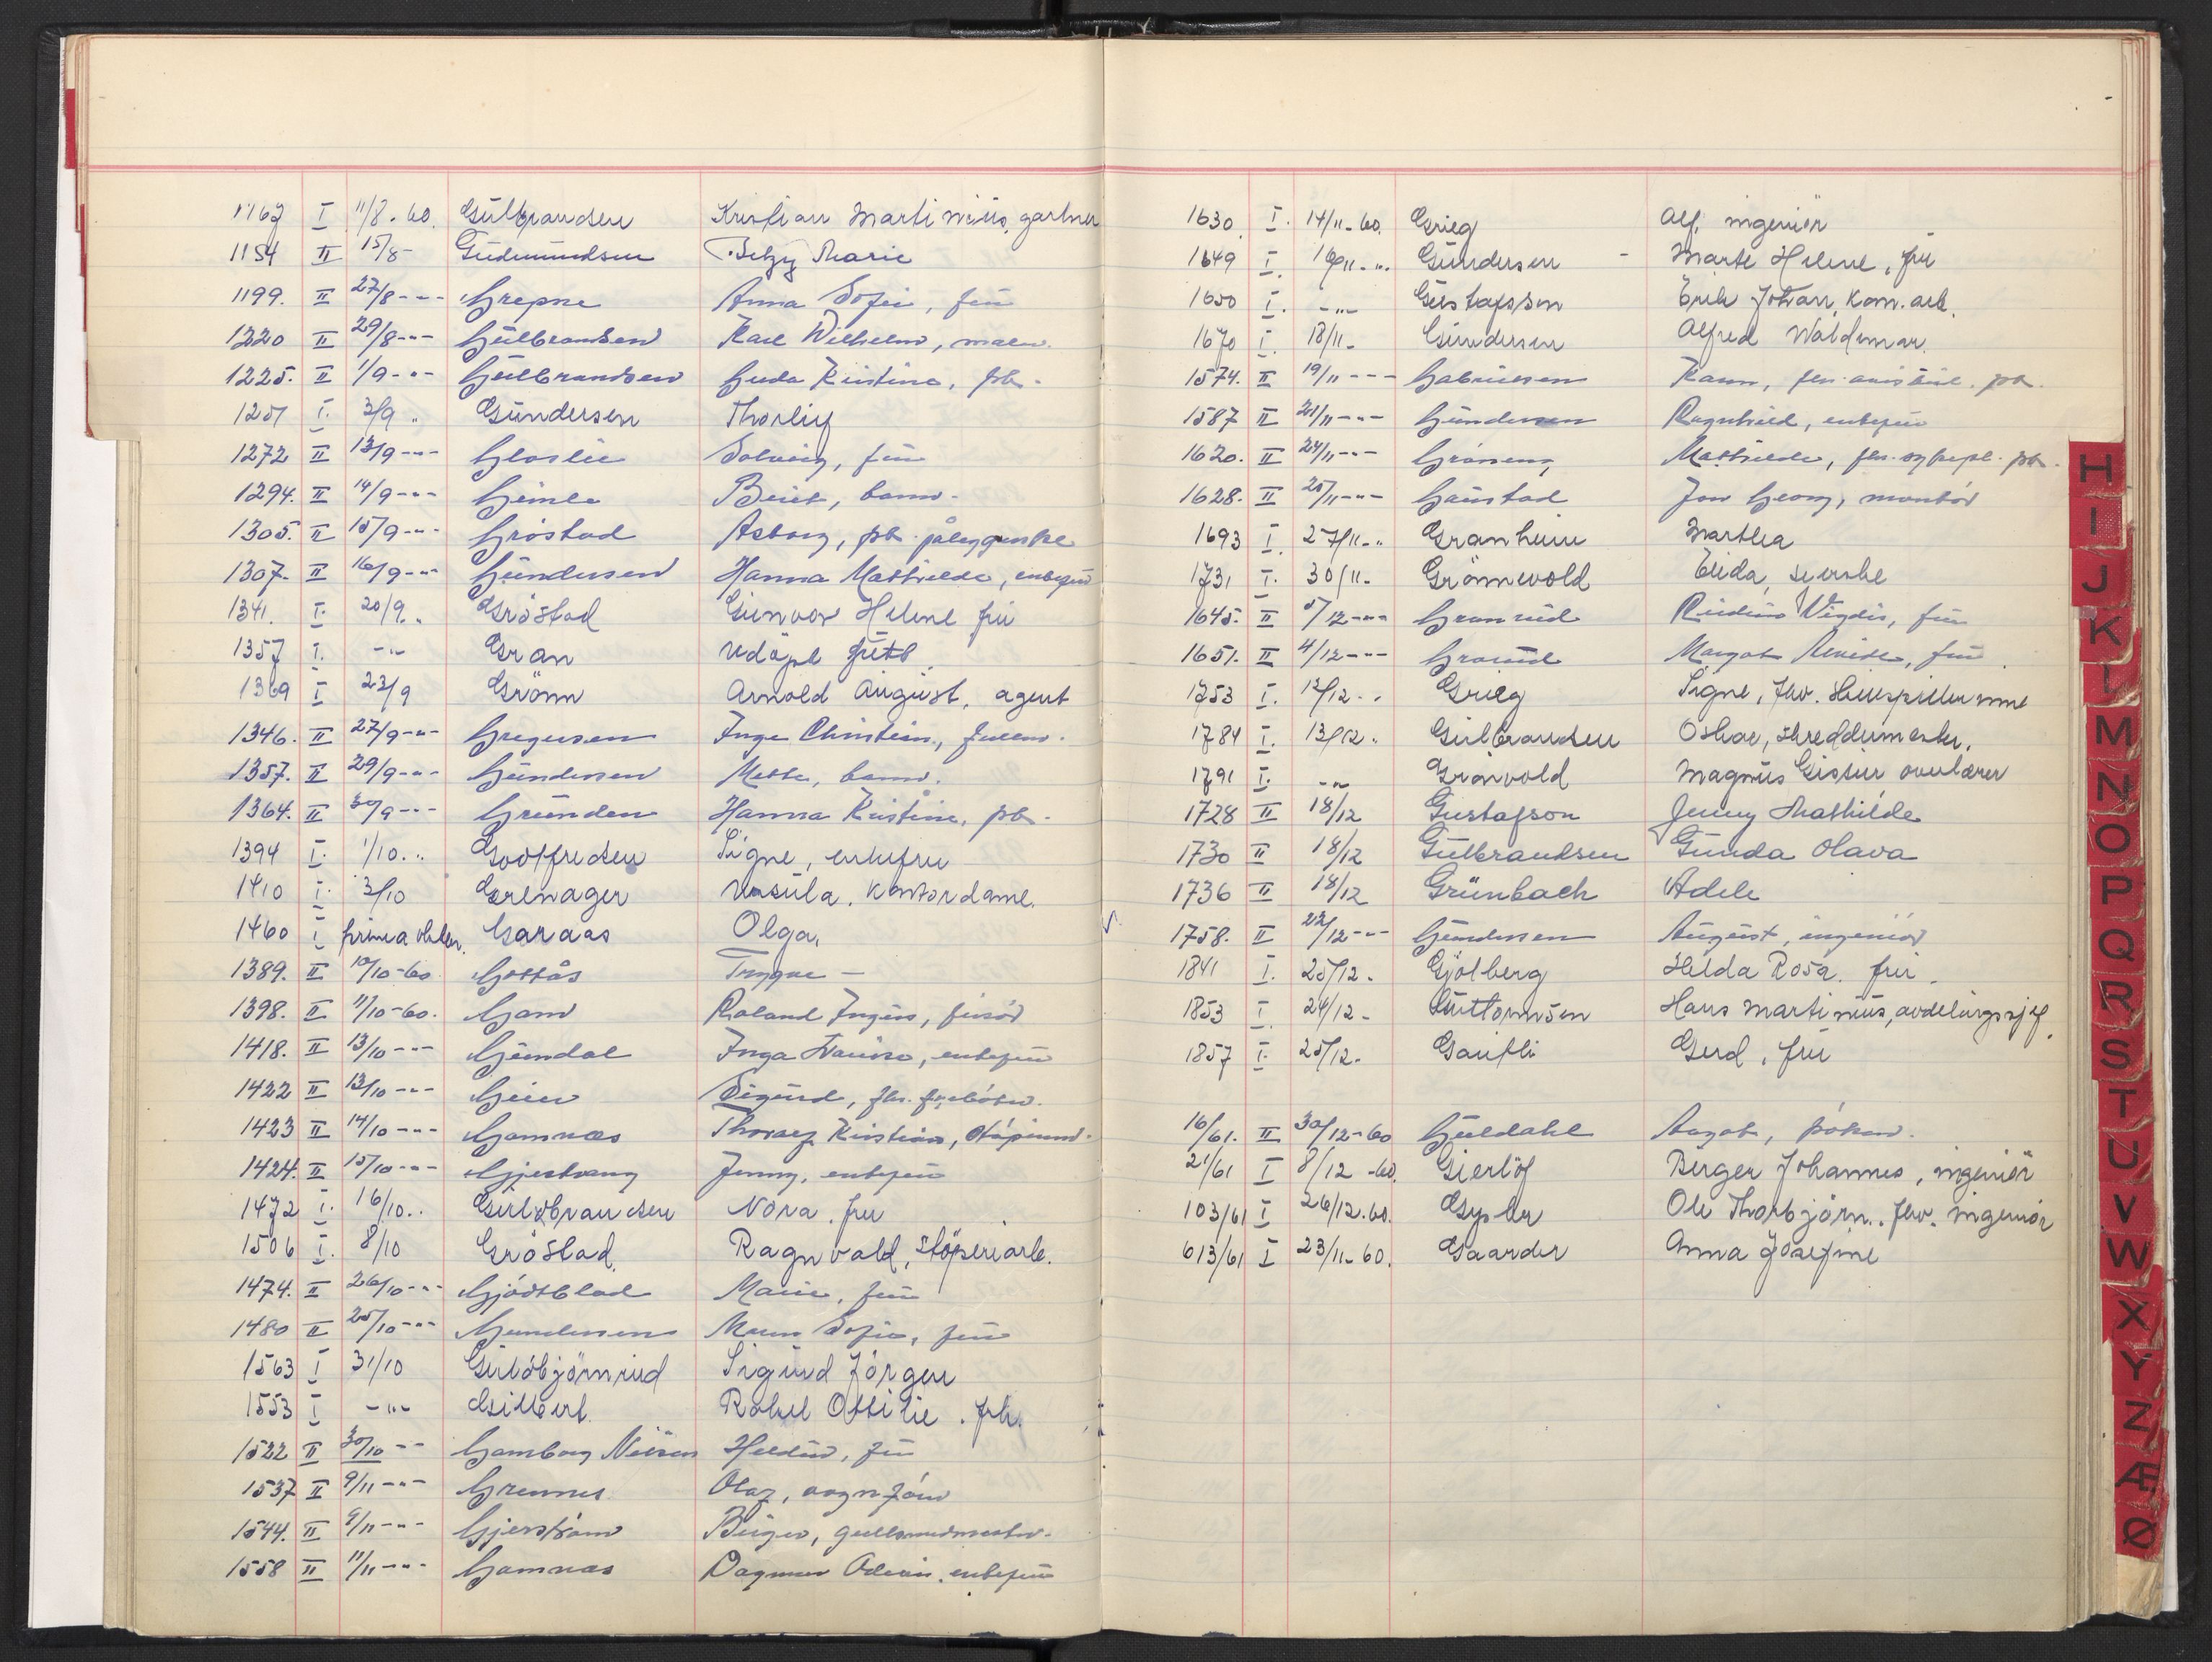 1167 I 11/8.60. Gulbrandsen Kristian Martinius, gartner
1154 II 15/8- Gudmundsen Betzy Marie
1199. II 27/8-"- Grepne Anna Sofie, frue
1220 II 29/8-"- Gulbrandsen Karl Wilhelm, maler
1225. II 1/9-"- Gulbrandsen Guda Kristine, pb.
1251 I. 3/9 " Gundersen Thorleif
1272 II 13/9-"- Gloslie Solveig, frue
1294. II 14/9-"- Gimle Berit, barn.
1305. II 15/9-"- Gröstad Asborg, pb.
1307. II 16/9-"- Gundersen Hanna Mathilde, enkefru
1341. I. 20/9. " Gröstad Gunvor Helene fru
1357 I. -"- Gran
1369 I 23/9 Grönn Arnold August, agent
1346. II 27/9-"- Gregersen Inge Christian,
1357. II 29/9-"- Gundersen Mette, barn.
1364. II 30/9-"- Gründen Hanna Kristine, pb.
1394 I. 1/10. " Gootfredsen Signe, enkefru
1410 I. 3/10 Grenager Ursula, kontordame.
1460 I primo okber. Garaas Olga,
1389. II 10/10-60 Gottås Trygve -
1398. II 11/10-60. Gam Roland frisör
1418. II 13/10-"- Grimdal Inga enkefru
1422 II 13/10-"- Geier Sigurd,
1423 II 14/10-"- Gamnæs Thoralf Kristian,
1424. II 15/10-"- Gjestvang Jenny, enkefru
1472 I. 16/10. " Gulbrandsen Nora. fru
1506 I. 8/10 Gröstad Ragnvald, stöperiarb.
1474. II 26/10-"- Gjödtblad Marie, frue
1480 II 25/10-"- Gundersen Sofie, frue
1563 I 31/10 Gulbjörnrud Sigurd Jörgen
1553 I -"- Gilbert. Rakel Ottilie. frk.
1522 II 30/10 -"- Gamborg Nielsen frue
1537 II 9/11-"- Grennes Olaf, vognfører
1544. II 9/11-"- Gjerström Birger, gullsmedmester.
1558 II 11/11-"- Gamnæs Dagmar enkefru
1630 I. 14/11-60. Grieg Alf, ingeniör
1649 I. 16/11-". Gundersen - Marte Helene, fru
1650 I. -"- Gustafsson Erik Johan, kom.arb.
1670 I. 18/11- Gundersen Alfred Waldemar.
1574. II 19/11-"- Gabrielsen Karen, pb.
1587 II 21/11-"- Gundersen Ragnhild, enkefru
1620. II 24/11-"- Grönseng Mathilde, fhv. sykepl. pb.
1628. II 25/11-"- Gaustad Jon Georg, montör
1693 I. 27/11-" Granheim Martha
1731 I. 30/11- Grönnevold Elida,
1645. II 5/12-"- Granrud Vigdis, frue
1651. II 4/12-"- Margot frue
1753 I. 12/12. " Grieg Signe, fhv. skuespillerinne
1784 I. 13/12. Gulbrandsen Oskar, skreddermester.
1791 I. -"- Grönvold Magnus Gissur overlærer
1728 II 18/12 Gustafson Jenny Mathilde
1730 II 18/12 Gulbrandsen Gunda Olava
1736 II 18/12 Grünbach Adele
1758. II 22/12-"- Gundersen August, ingeniör
1841 I. 25/12. Gjölberg Helda Rosa. fru.
1853 I. 24/12- Guttormsen Hans Martinius, avdelingssjef.
1857 I. 25/12. Gausli Gerd, fru
16/61. II 30/12-60 Guldahl Aagot,
21/61 I 8/12 -60. Gierlöf Birger Johannes, ingeniör
103/61 I 26/12.60. Gysler Ole Thorbjörn.. fhv. ingeniör
613/61 I 23/11-60. Gaarder Anna Josefine
H
I
J
K
L
M
N
O
P
Q
R
S
T
U
V
W
X
Y
Z
Æ
Ø